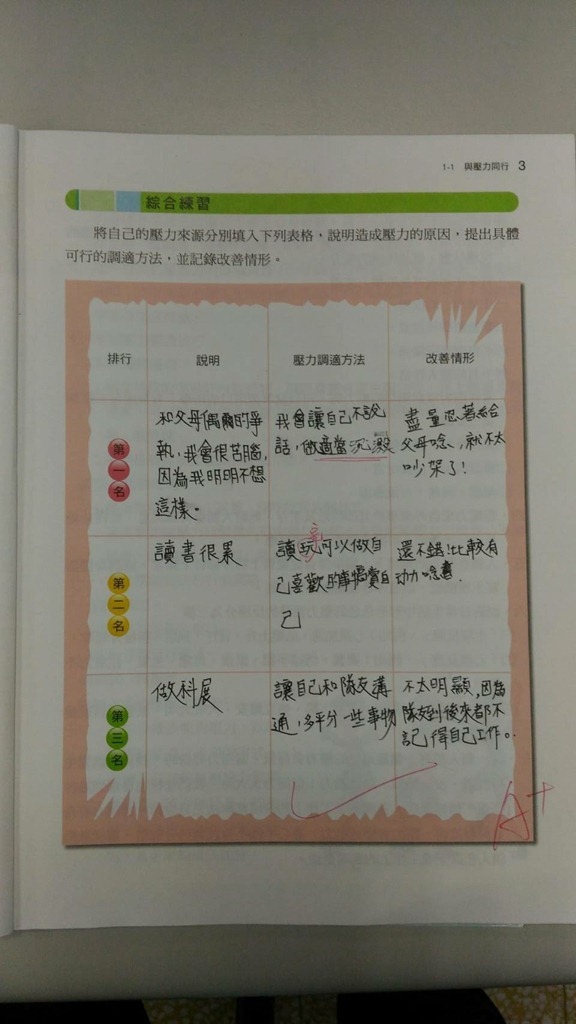 1-1 與壓力同行 3
綜合練習
將自己的壓力來源分別填入下列表格，說明造成壓力的原因，提出具體
可行的調適方法，並記錄改善情形。
排行 說明 壓力調適方法 改善情形
第一名
和父母偶爾的爭
執，我會很苦腦，
因為我明明不想
這樣。
我會讓自己不說
話，做適當沉澱
盡量忍著給
父母唸，就不太
吵架了！
第二名
讀書很累
讀玩可以做自
己喜歡的事犒賞自
己
還不錯！比較有
動力唸書．
第三名
做科展
讓自己和隊友溝
通，多平分一些事物
不太明顯，因為
隊友到後來都不
記得自己工作。
A+